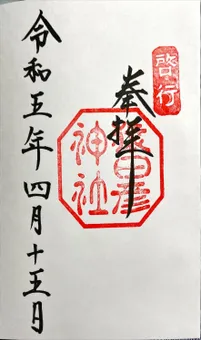 啓行
奉拝
猿田彦神社
令和五年四月十五日